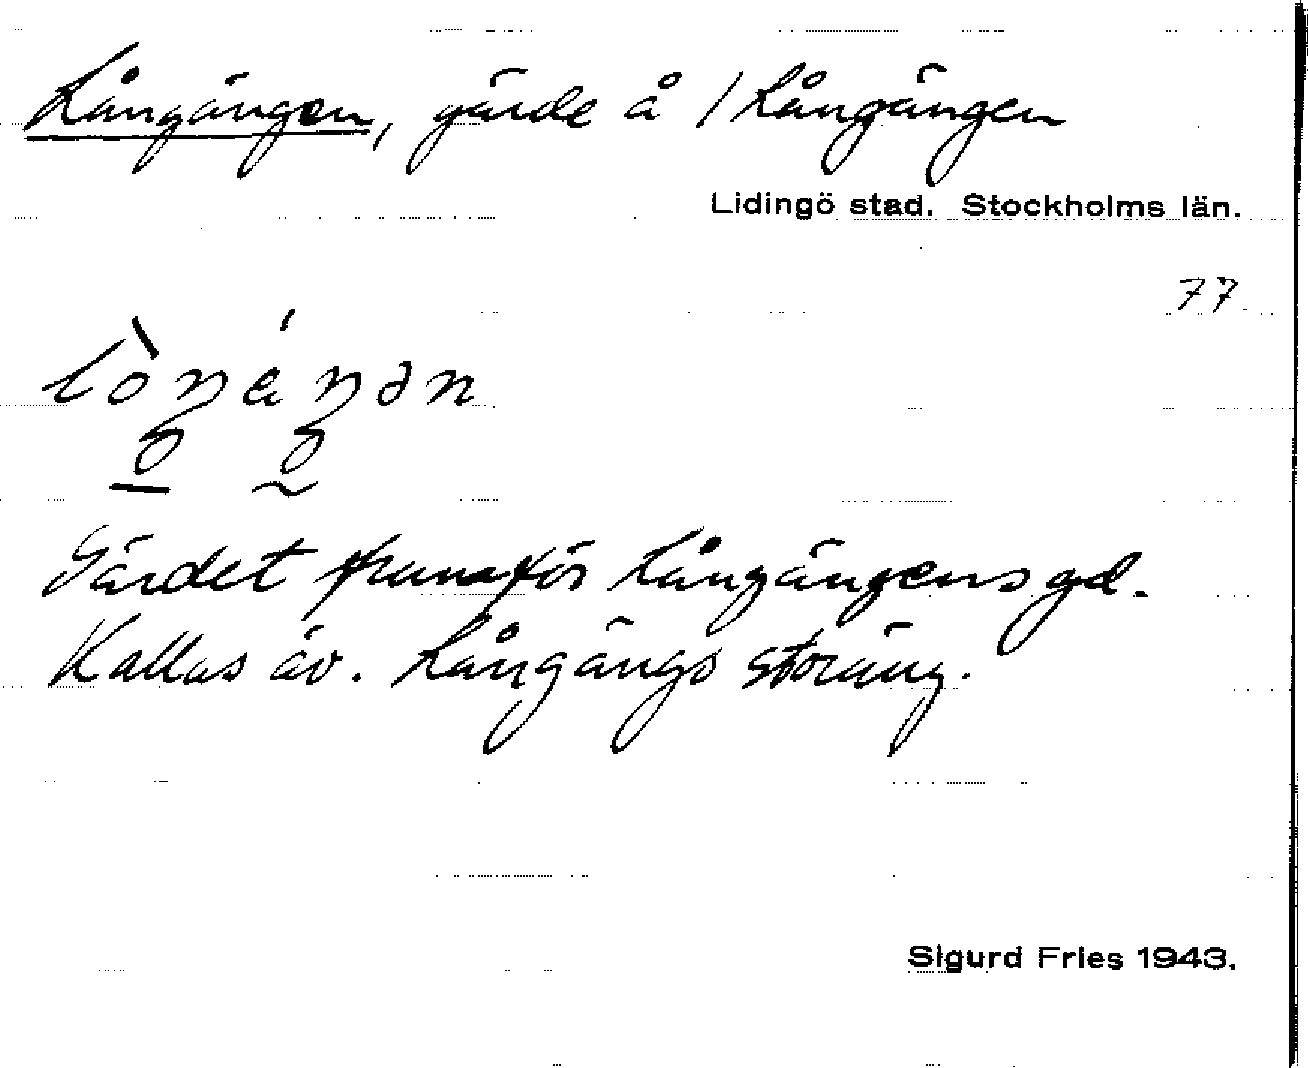 Långängen, gärde å 1 Långängen
Lidingö stad. Stockholms län.
77
Gärdet framför Långängens gd.
Kallas äv. Långängs storäng.
Sigurd Fries 1943.